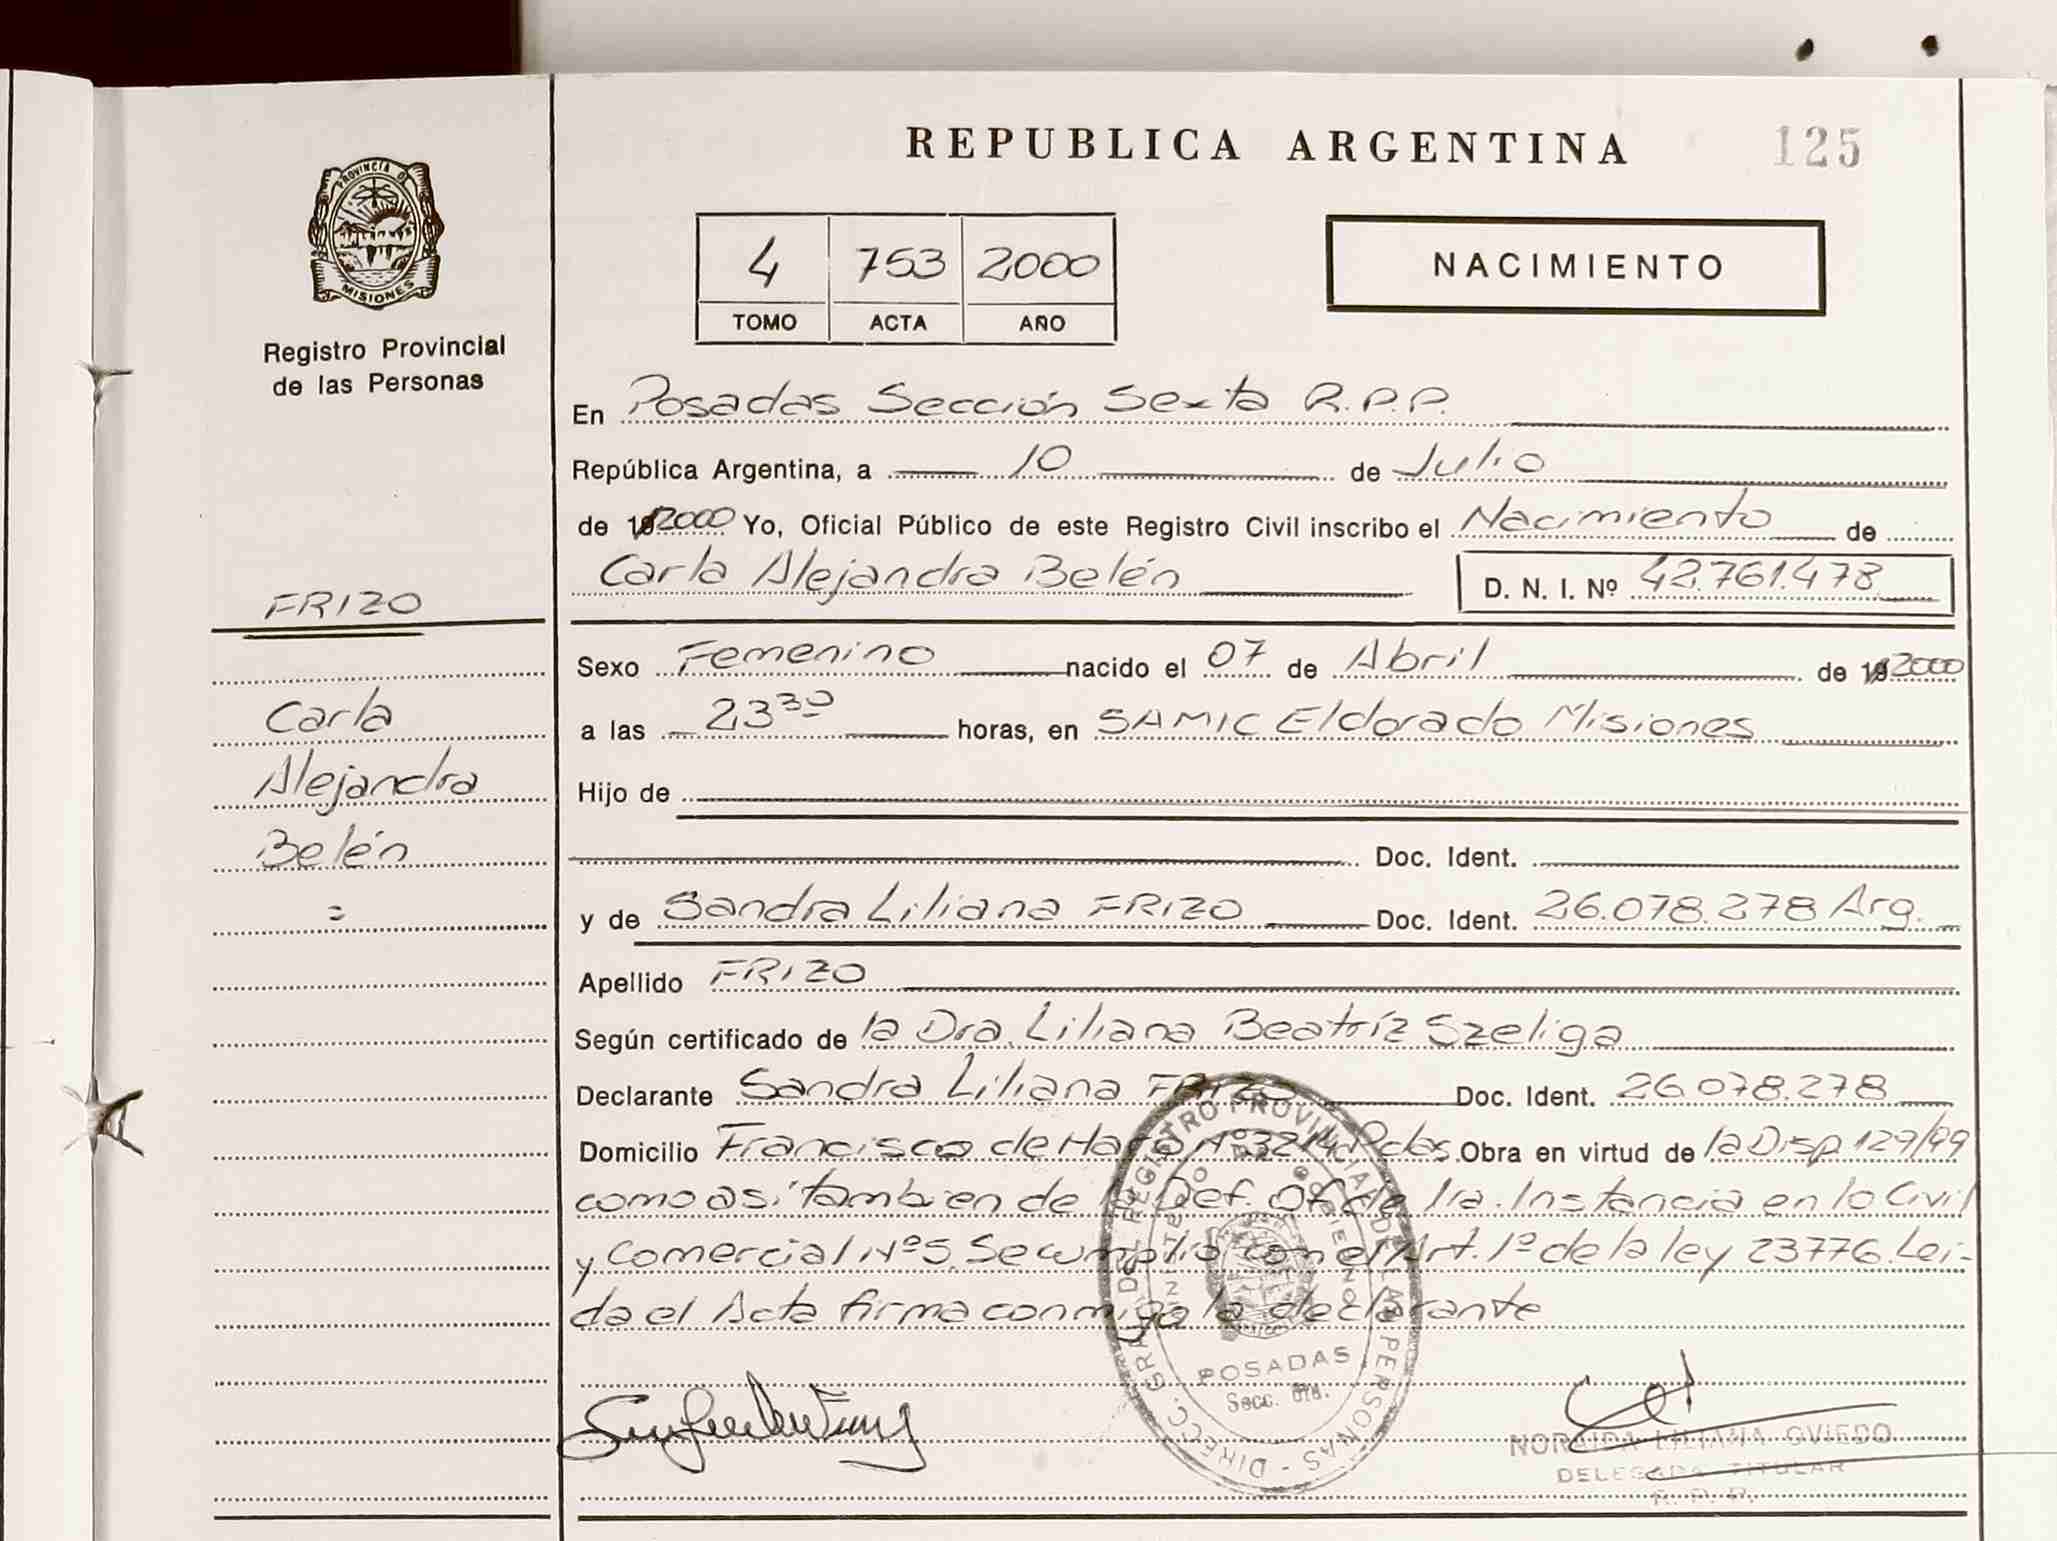 REPUBLICA ARGENTINA 125
PROVINCIA DE MISIONES
Registro Provincial
de las Personas
4 753 2000
TOMO ACTA AÑO
NACIMIENTO
En Posadas Sección Sexta R.P.P.
República Argentina, a 10 de Julio
de 2000 Yo, Oficial Público de este Registro Civil inscribo el Nacimiento de
Carla Alejandra Belén D. N. I. Nº 42.761.478
FRIZO
Carla
Alejandra
Belén
Sexo Femenino nacido el 07 de Abril de 2000
a las 23 30 horas, en SAMIC Eldorado Misiones
Hijo de
Doc. Ident.
y de Sandra Liliana FRIZO Doc. Ident. 26.078.278 Arg.
Apellido FRIZO
Según certificado de la Dra. Liliana Beatríz Szeliga
Declarante Sandra Liliana FRIZO Doc. Ident. 26.078.278
Domicilio Francisco de Haro Nº 3214 Pdas. Obra en virtud de la Disp 129/99
como así tambien de la Def. Of. de 1ra. Instancia en lo Civil
y Comercial Nº 5. Se cumplió con el Art. 1º de la ley 23776. Lei-
da el Acta firma conmigo la declarante
DIREC. GRAL. DEL REGISTRO PROVINCIAL DE LAS PERSONAS
MINISTERIO DE GOBIERNO
POSADAS
Secc. 6ta.
NORAIDA LILIANA OVIEDO
DELEGADA TITULAR
R. P. P.